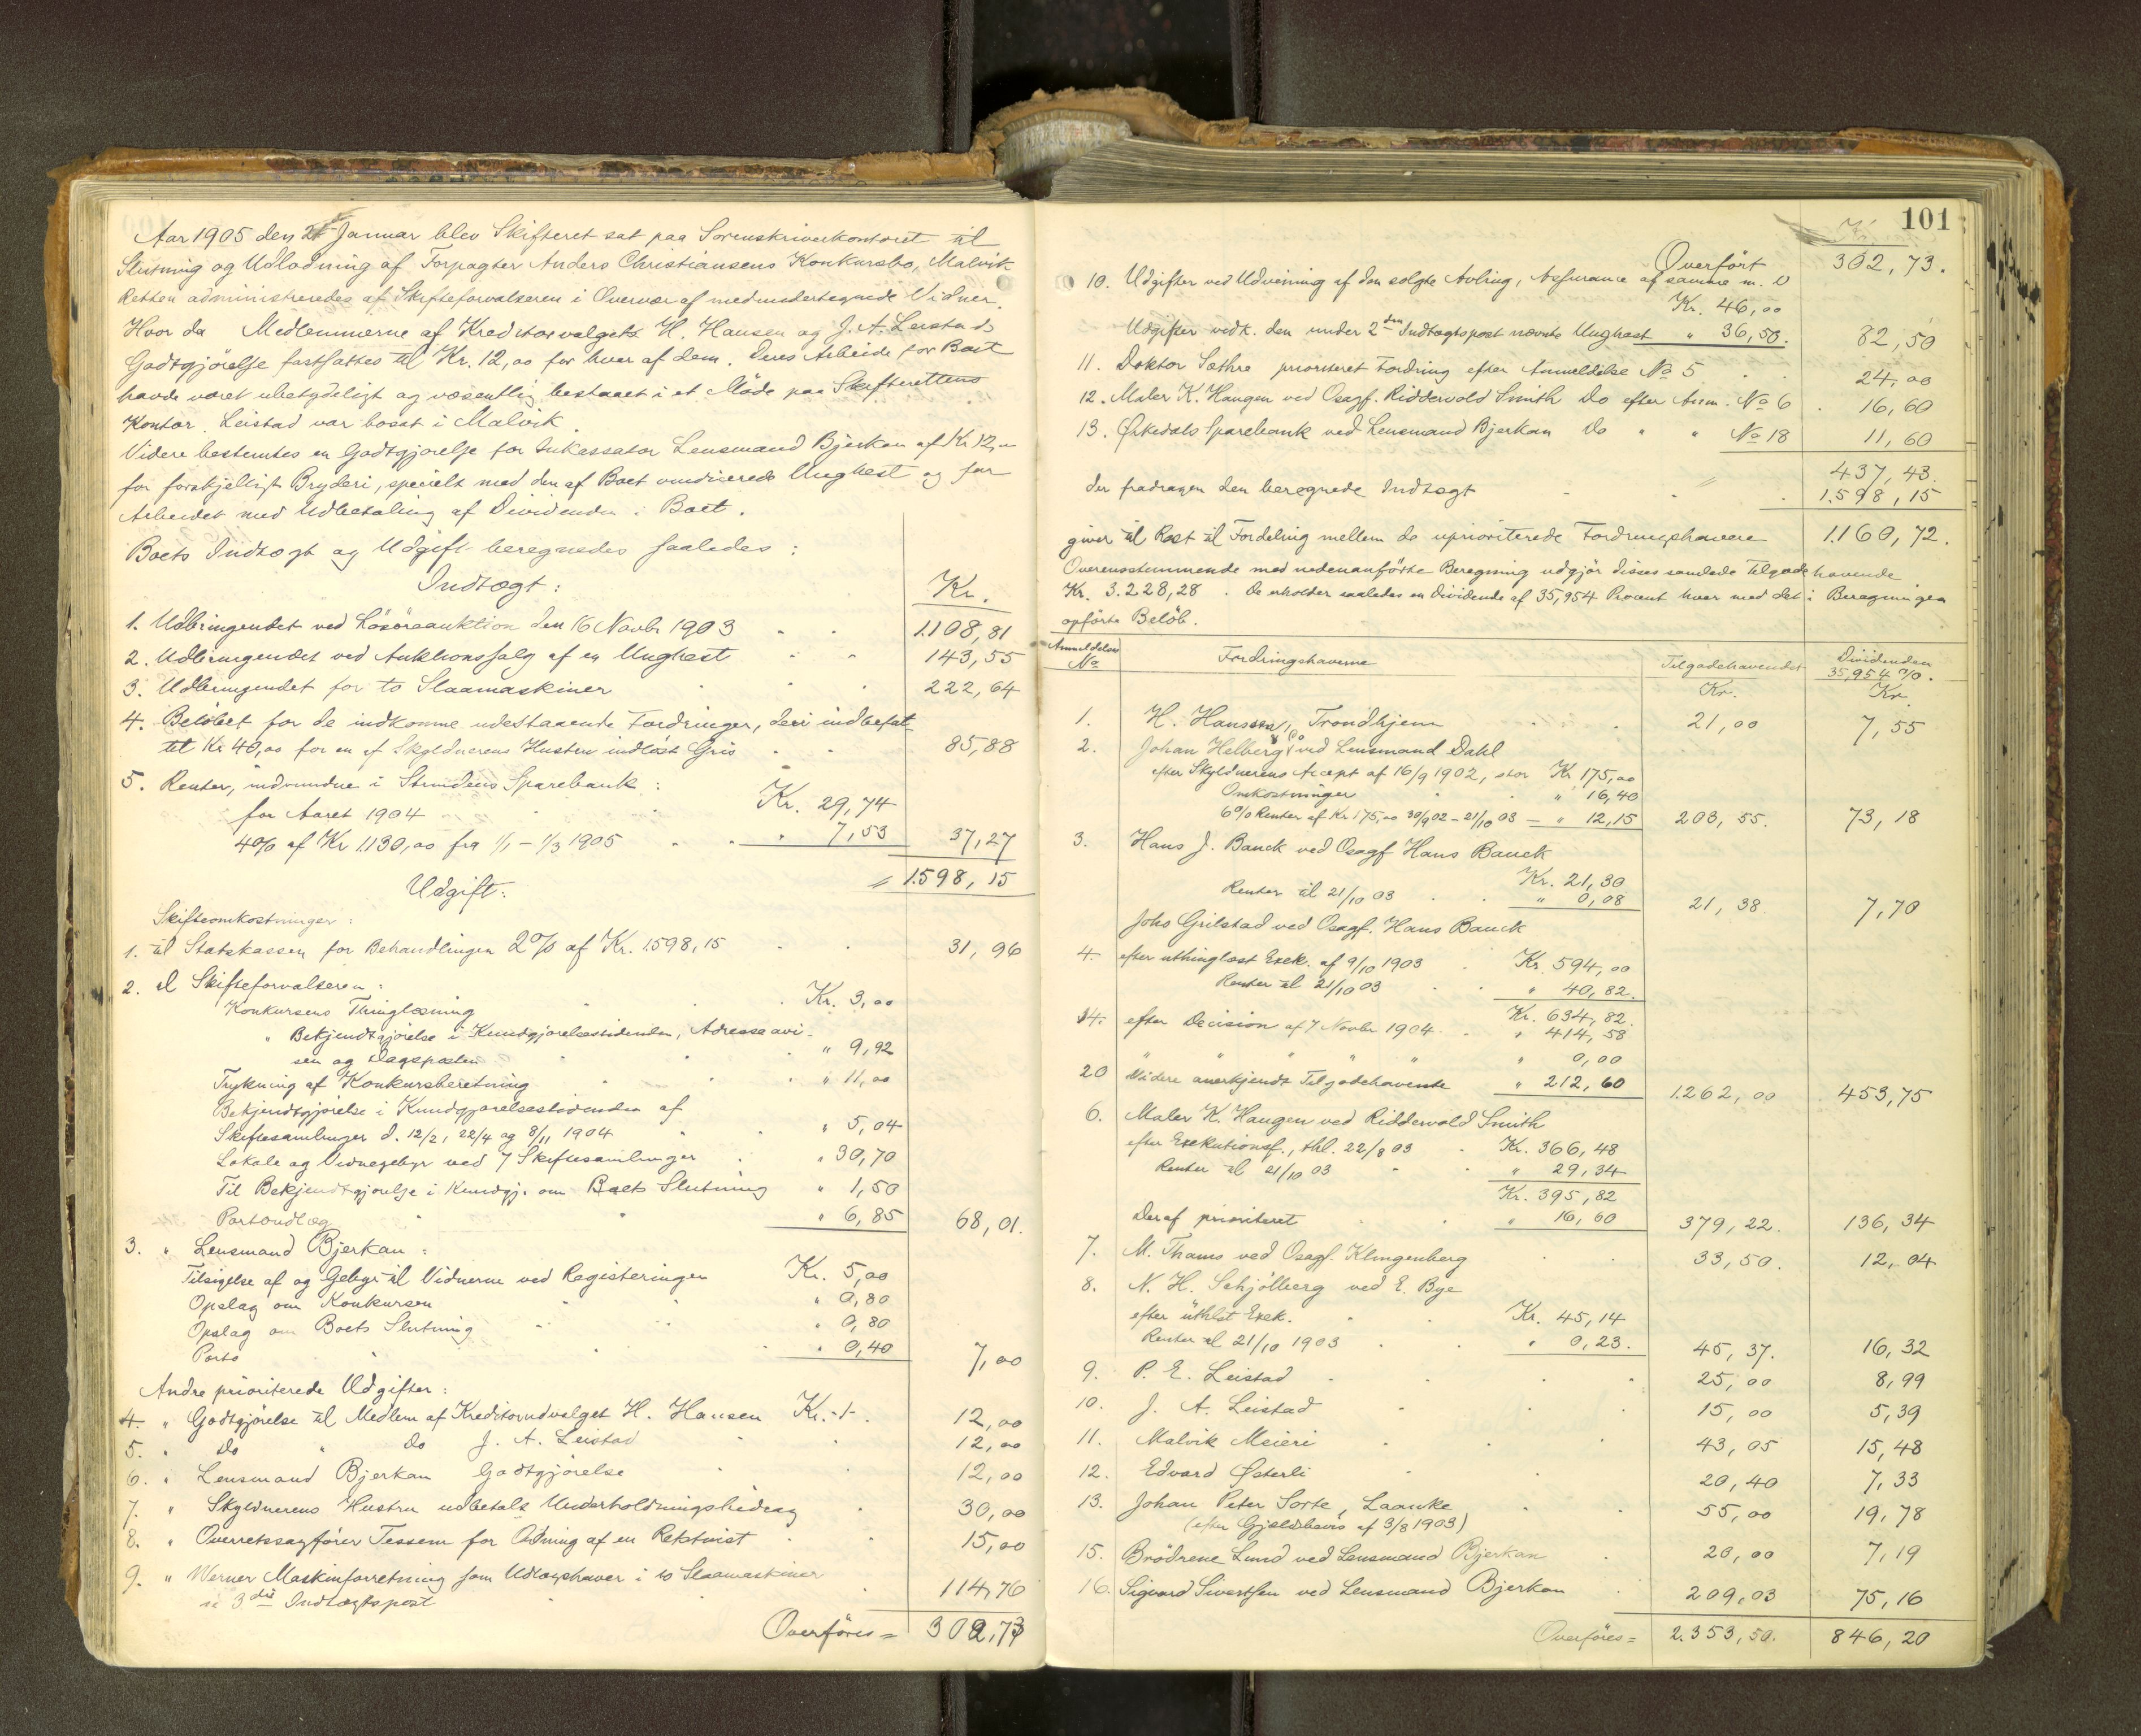 Aar 1905 den 24 Januar blev Skifteret sat paa Sorenskriverkontoret til
Slutning og Udlodning af Forpagter Anders Christiansens Konkursbo, Malvik
Retten administreredes af Skifteforvalteren i Overvær af medundertegnede Vidner.
Hvor da Medlemmerne af Kreditorvalgets H. Hansen og J. A. Leistads
Godtgjörelse fastsattes til Kr. 12,00 for hver af dem. Deres Arbeide for Boet
havde været ubetydeligt og væsentlig bestaaet i et Möde paa Skifterettens
Kontor. Leistad var bosat i Malvik.
Videre bestemtes en Godtgjörelse for Inkassator Lensmand Bjerkan af Kr 12,00
for forskjelligt Bryderi, specielt med den af Boet vindicerede Unghest og for
Arbeidet med Udbetaling af Dividenden i Boet.
Boets Indtægt og Udgift beregnedes saaledes:
Indtægt:
Kr.
1. Udbringendet ved Lösöreauktion den 16 Novbr 1903 1.108,81
2. Udbringendet ved Auktionssalg af en Unghest 143,55
3. Udbringendet for to Slaamaskiner 222,64
4. Belöbet for de indkomne udestaaende Fordringer, deri indbefat
tet Kr 40,00 for en af Skyldnerens Hustru indlöst Gris 85,88
5. Renter, indvundne i Strindens Sparebank:
for Aaret 1904 Kr. 29,74
4% af Kr 1130,00 fra 1/1 - 1/3 1905 " 7,53 37,27
= 1.598,15
Udgift:
Skifteomkostninger:
1. til Statskassen for Behandlingen 2% af Kr. 1598,15 31,96
2. til Skifteforvalteren:
Konkursens Thinglæsning Kr. 3,00
" Bekjendtgjörelse i Kundgjörelsestidenden, Adresseavi-
sen og Dagsposten " 9,92
Trykning af Konkursberetning " 11,00
Bekjendtgjörelse i Kundgjörelsestidenden af
Skiftesamlinger d. 12/2, 22/4 og 8/11 1904 " 5,04
Lokale og Vidnegebyr ved 7 Skiftesamlinger " 30,70
Til Bekjendtgjörelse i Kundgj. om Boets Slutning " 1,50
Portoudlæg " 6,85 68,01.
3. " Lensmand Bjerkan:
Tilsigelse af og Gebyr til Vidnerne ved Registeringen Kr. 5,00
Opslag om Konkursen " 0,80
Opslag om Boets Slutning " 0,80
Porto " 0,40 7,00
Andre prioriterede Udgifter:
4. " Godtgjörelse til Medlem af Kreditorudvalget H. Hansen Kr. 12,00
5. " Do " Do J. A. Leistad 12,00
6. " Lensmand Bjerkan Godtgjörelse 12,00
7. " Skyldnerens Hustru udbetalt Underholdningsbidrag 30,00
8. " Overretssagförer Tessem for Ordning af en Retstvist 15,00
9. " Werner Maskinforretning som Udlægshaver i to Slaamaskiner
se 3die Indtægtspost 114,76
Overföres = 302,73
101
Kr.
Overfört 302,73.
10. Udgifter ved Udvinding af den solgte Avling, Assurance af samme m. v
Kr. 46,00
Udgifter vedk. den under 2den Indtægtspost nævnte Unghest " 36,50. 82,50
11. Doktor Sæthre prioriteret Fordring efter Anmeldelse No 5 24,00
12. Maler K. Haugen ved Osagf. Riddervold Smith Do efter Anm. No 6 16,60
13. Örkedals Sparebank ved Lensmand Bjerkan Do " " No 18 11,60
437,43.
der fradragen den beregnede Indtægt 1.598,15
giver til Rest til Fordeling mellem de uprioriterede Fordringshavere 1.160,72.
Overensstemmende med nedenanförte Beregning udgjör disses samlede Tilgodehavende
Kr. 3.228,28. De erholder saaledes en Dividende af 35,954 Procent hver med det i Beregningen
opförte Belöb.
Anmeldelses No Fordringshaverne Tilgodehavendet Dividenden 35,954 %.
Kr. Kr.
1. H. Hanssen, Trondhjem 21,00 7,55
2. Johan Helberg & Co ved Lensmand Dahl
efter Skyldnerens Accept af 16/9 1902, stor Kr 175,00
Omkostninger " 16,40
6% Renter af Kr 175,00 30/9 02 - 21/10 03 - " 12,15 203,55. 73,18
3. Hans J. Banck ved Osagf Hans Banck
Kr. 21,30
Renter til 21/10 03 " 0,08 21,38. 7,70
Johs Grilstad ved Osagf. Hans Banck
4. efter uthinglæst Exek. af 9/10 1903 Kr. 594,00
Renter til 21/10 03 " 40,82.
Kr. 634,82.
14. efter Decision af 7 Novbr 1904 " 414,58
" " " " " " 0,00
20 Videre anerkjendt Tilgodehavende " 212,60 1.262,00 453,75
6. Maler K. Haugen ved Riddervold Smith
efter Exekutionsf., thl. 22/8 03 Kr. 366,48
Renter til 21/10 03 " 29,34
Kr. 395,82
Deraf prioriteret " 16,60 379,22. 136,34
7. M. Thams ved Osagf. Klingenberg 33,50. 12,04
8. N. H. Schjölberg ved E. Bye
efter uthlst Exek. Kr. 45,14
Renter til 21/10 1903 " 0,23. 45,37. 16,32
9. P. E. Leistad 25,00 8,99
10. J. A. Leistad 15,00 5,39
11. Malvik Meieri 43,05 15,48
12. Edvard Østerli 20,40 7,33
13. Johan Peter Sorte, Laanke
(efter Gjældsbevis af 3/8 1903) 55,00 19,78
15. Brödrene Lund ved Lensmand Bjerkan 20,00 7,19
16. Sigvard Sivertsen ved Lensmand Bjerkan 209,03 75,16
Overföres = 2.353,50. 846,20